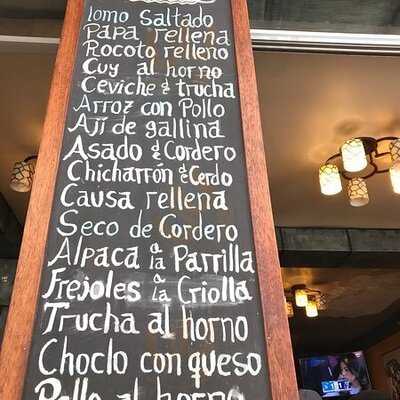 lomo saltado
Papa rellena
Rocoto relleno
Cuy al horno
Ceviche de trucha
Arroz con Pollo
Ají de gallina
Asado de Cordero
Chicharrón de Cerdo
Causa rellena
Seco de Cordero
Alpaca a la Parrilla
Frejoles a la Criolla
Trucha al horno
Choclo con queso
Pollo al horno